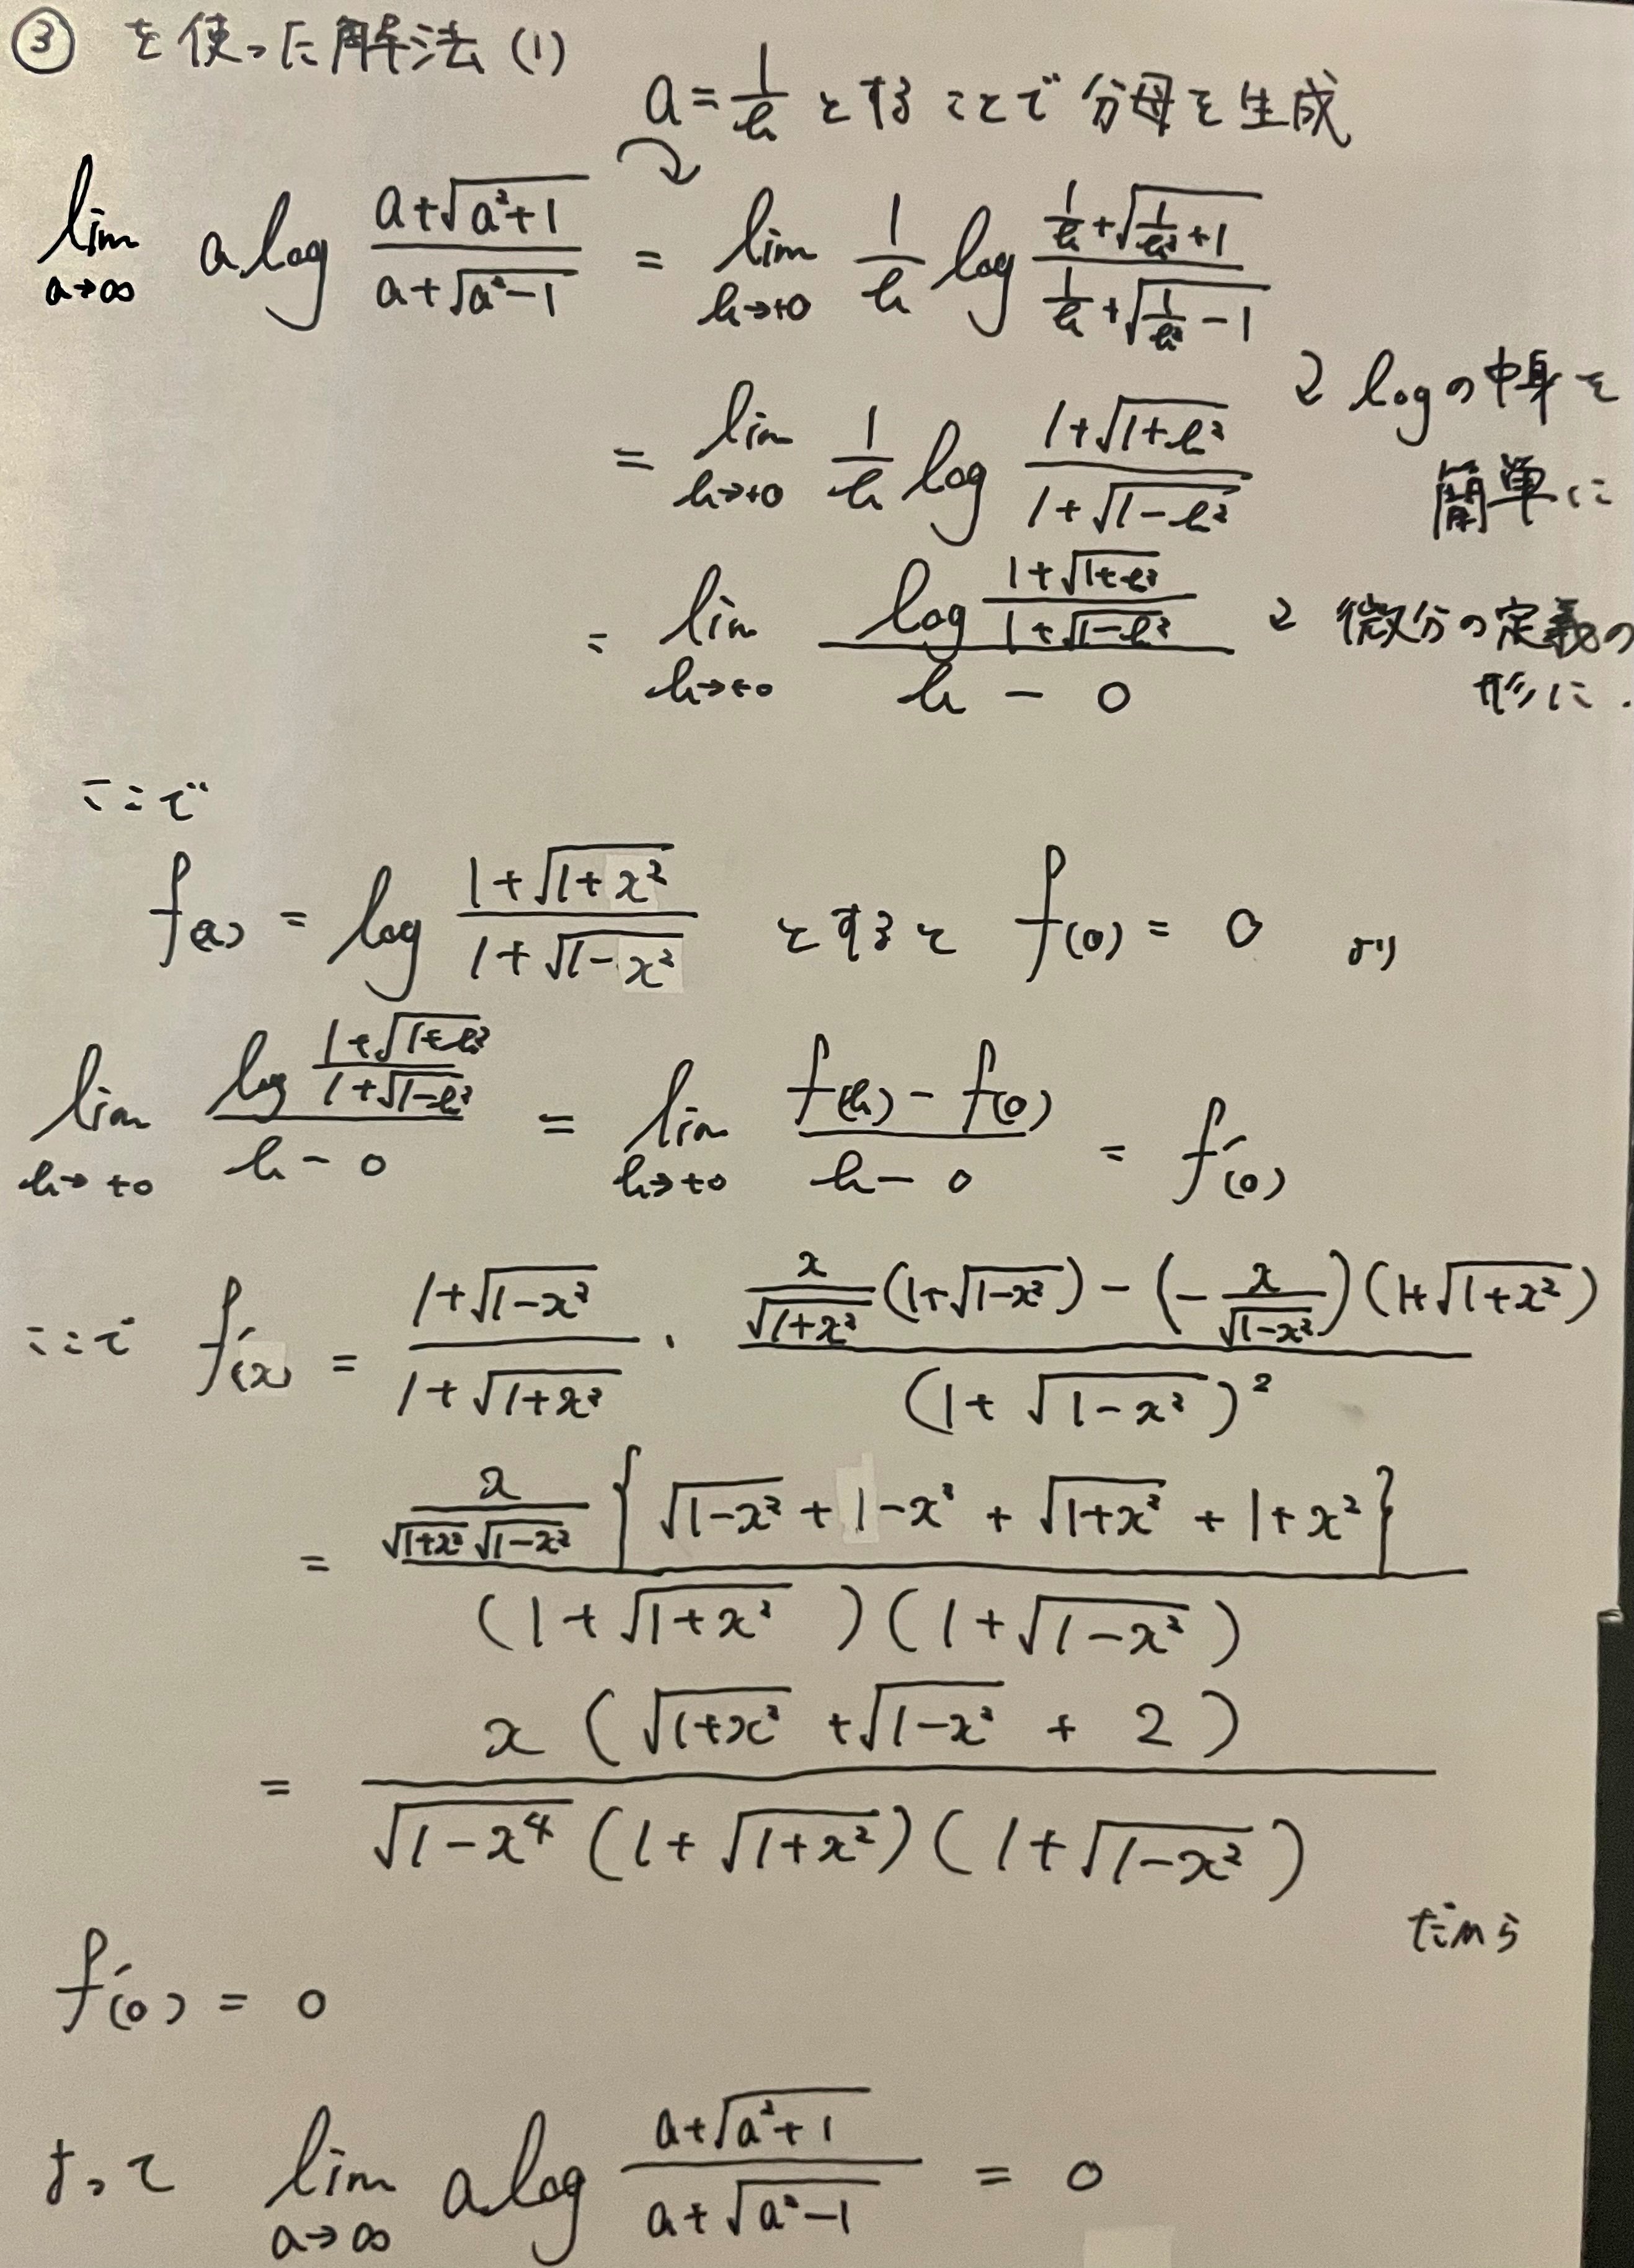 ③ を使った解法 (1)
a = 1/h とすることで 分母を生成
lim_{a→∞} a log (a+√(a²+1))/(a+√(a²-1)) = lim_{h→+0} 1/h log (1/h+√(1/h²+1))/(1/h+√(1/h²-1))
= lim_{h→+0} 1/h log (1+√(1+h²))/(1+√(1-h²)) logの中身を
簡単に
= lim_{h→+0} (log (1+√(1+h²))/(1+√(1-h²)))/(h - 0) 微分の定義の
形に.
ここで
f(x) = log (1+√(1+x²))/(1+√(1-x²)) とすると f(0) = 0 より
lim_{h→+0} (log (1+√(1+h²))/(1+√(1-h²)))/(h - 0) = lim_{h→+0} (f(h) - f(0))/(h - 0) = f'(0)
ここで f'(x) = (1+√(1-x²))/(1+√(1+x²)) · (x/√(1+x²) (1+√(1-x²)) - (-x/√(1-x²))(1+√(1+x²)))/(1+√(1-x²))²
= (x/(√(1+x²)√(1-x²)) {√(1-x²) + 1-x² + √(1+x²) + 1+x²})/((1+√(1+x²))(1+√(1-x²)))
= x(√(1+x²) + √(1-x²) + 2)/(√(1-x⁴)(1+√(1+x²))(1+√(1-x²)))
だから
f'(0) = 0
よって lim_{a→∞} a log (a+√(a²+1))/(a+√(a²-1)) = 0